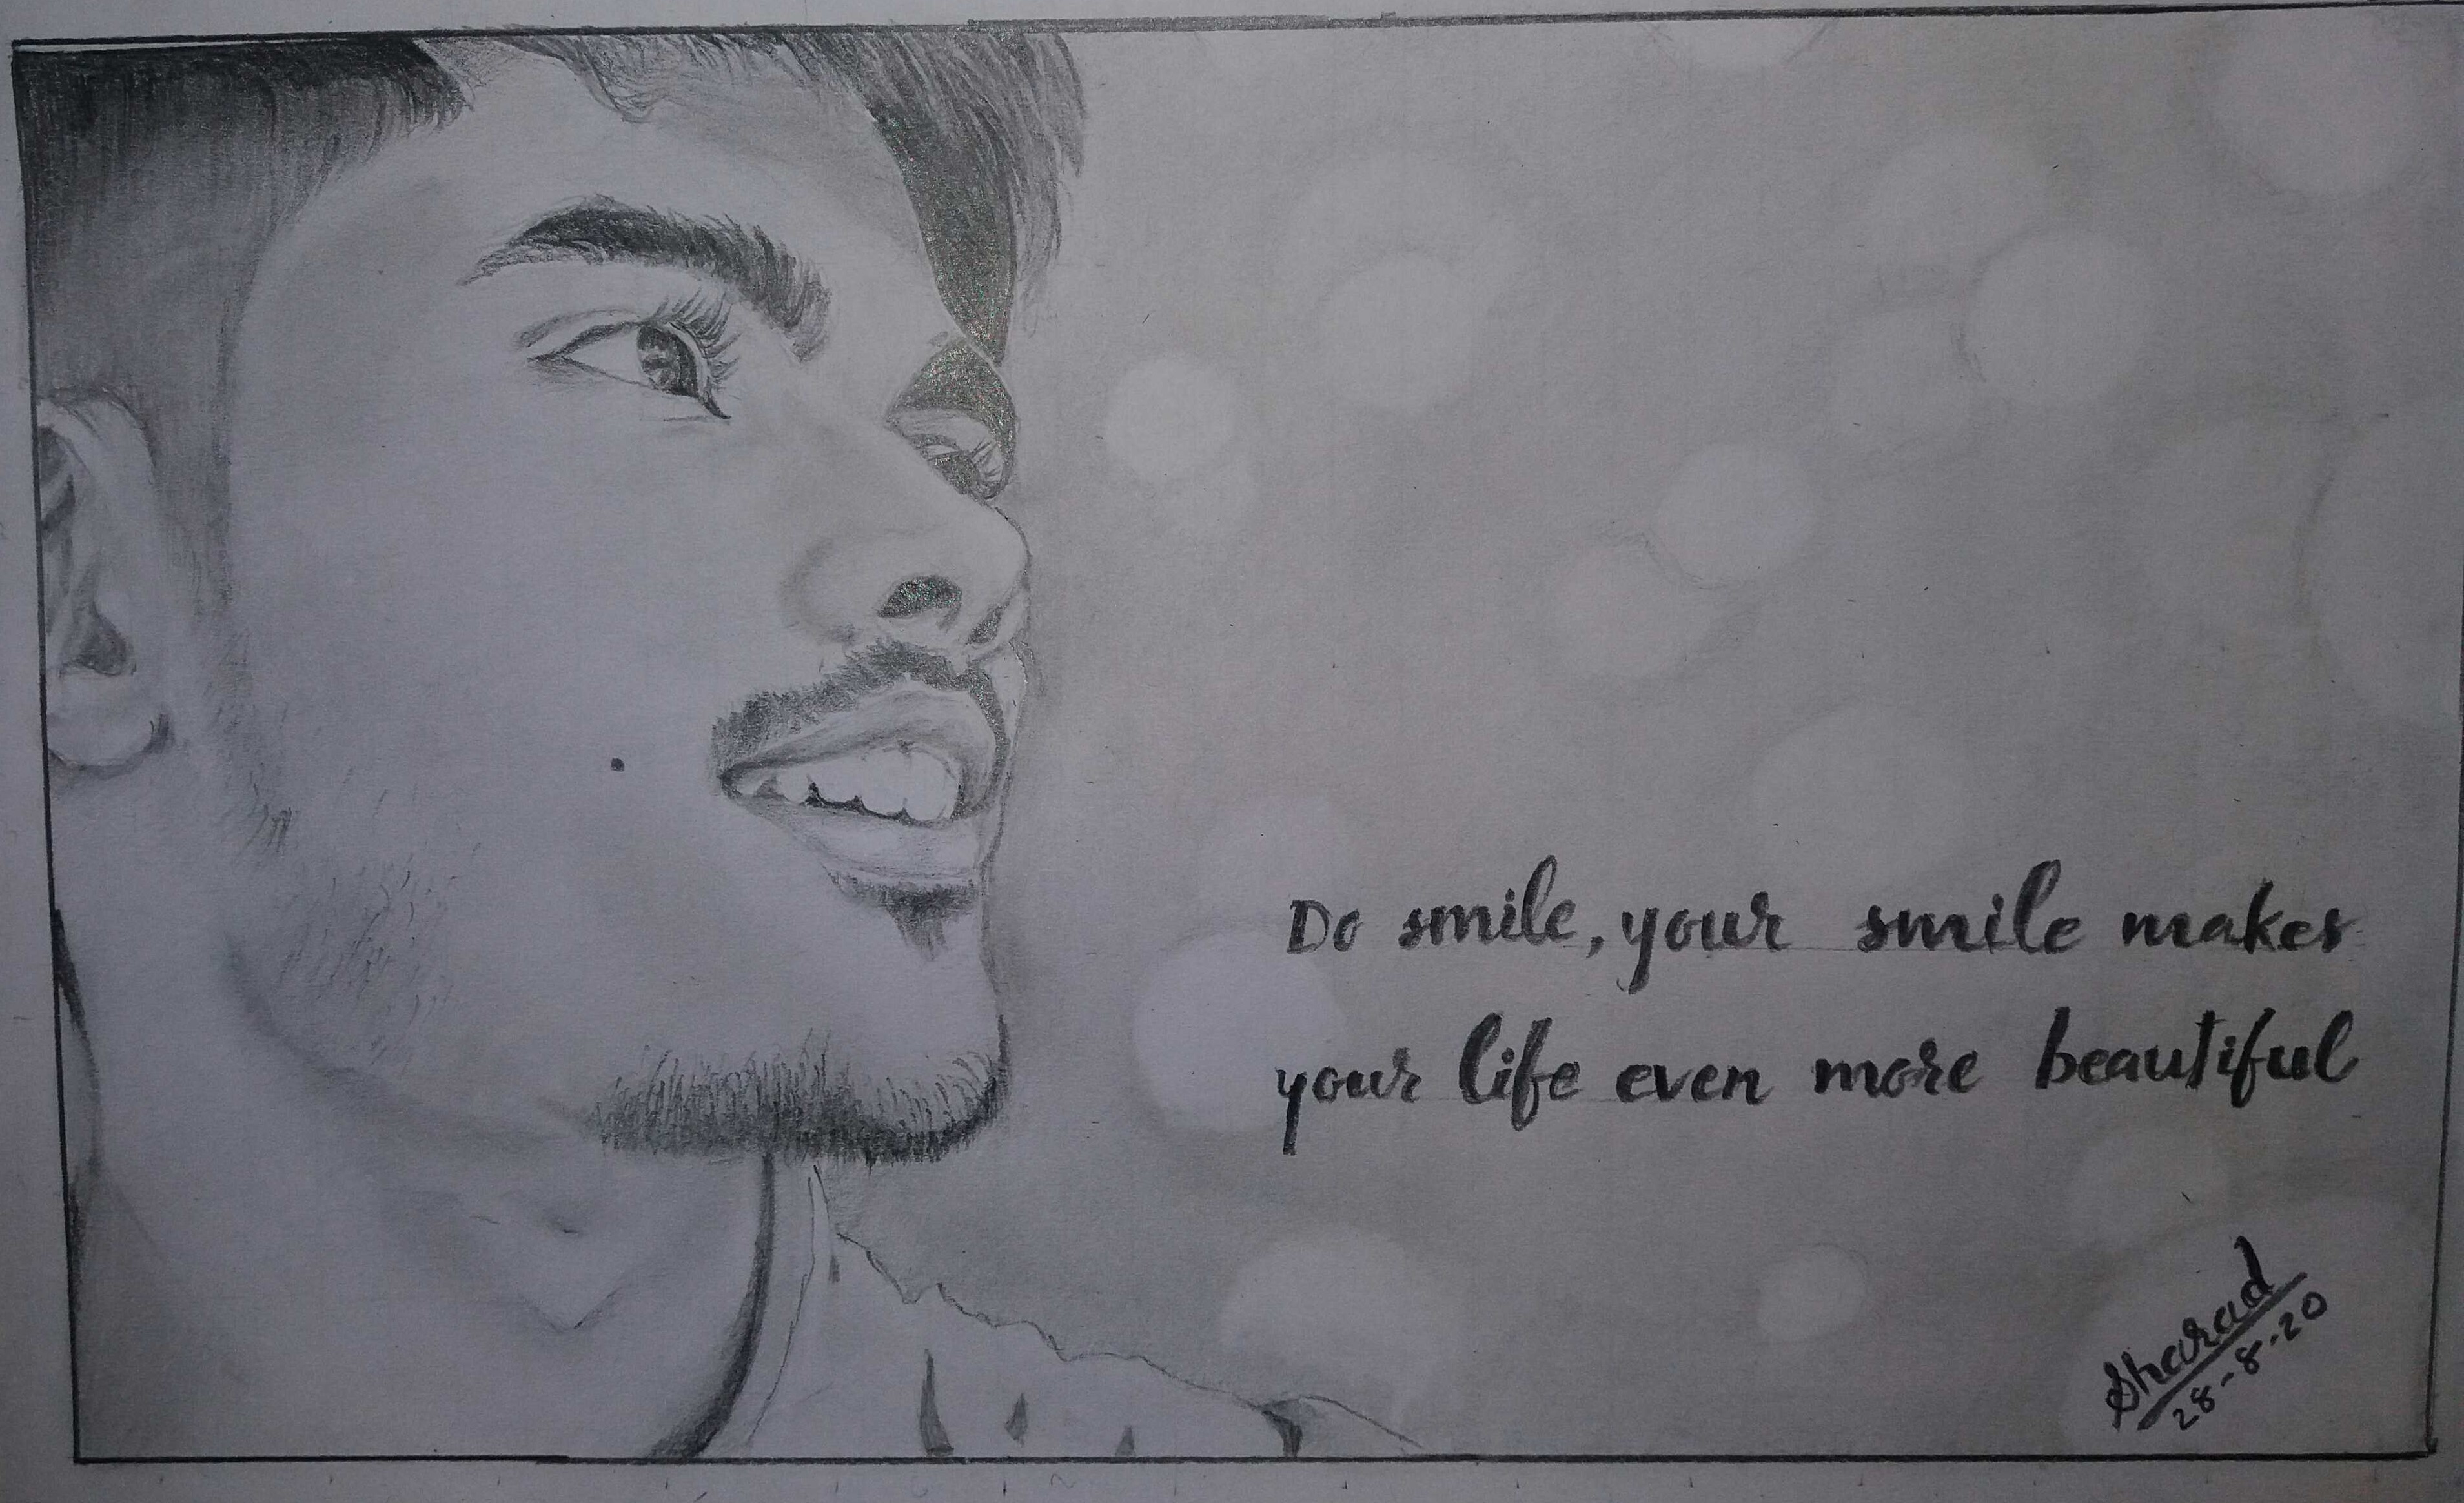 Do smile, your smile makes
your life even more beautiful
Sharad
28-8-20